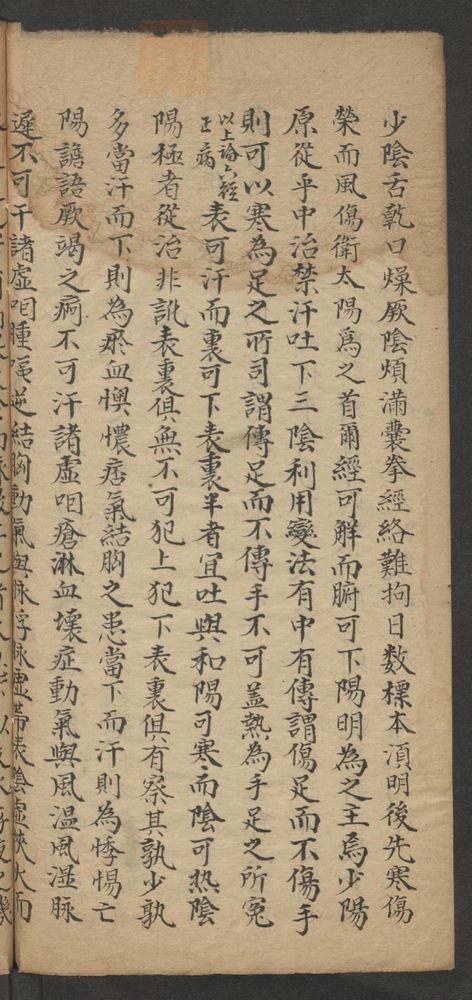 少陰舌乾口燥厥陰煩滿囊拳經絡難拘日数標本湏明後先寒傷
榮而風傷衛太陽為之首爾經可解而腑可下陽明為之主焉少陽
原從乎中治禁汗吐下三陰利用變法有中有傳謂傷足而不傷手
則可以寒為足之所司謂傳足而不傳手不可盖熱為手足之所冤
以上論六經正病表可汗而裏可下表裏半者宜吐與和陽可寒而陰可热陰
陽極者從治非訛表裏俱無不可犯上犯下表裏俱有察其孰少孰
多當汗而下則為瘀血懊憹痞氣結胸之患當下而汗則為悸惕亡
陽譫語厥竭之痾不可汗諸虛咽瘡淋血壞症動氣與風温風湿脉
遲不可干諸虛咽腫嘔逆結胸動氣與脉浮脉虛